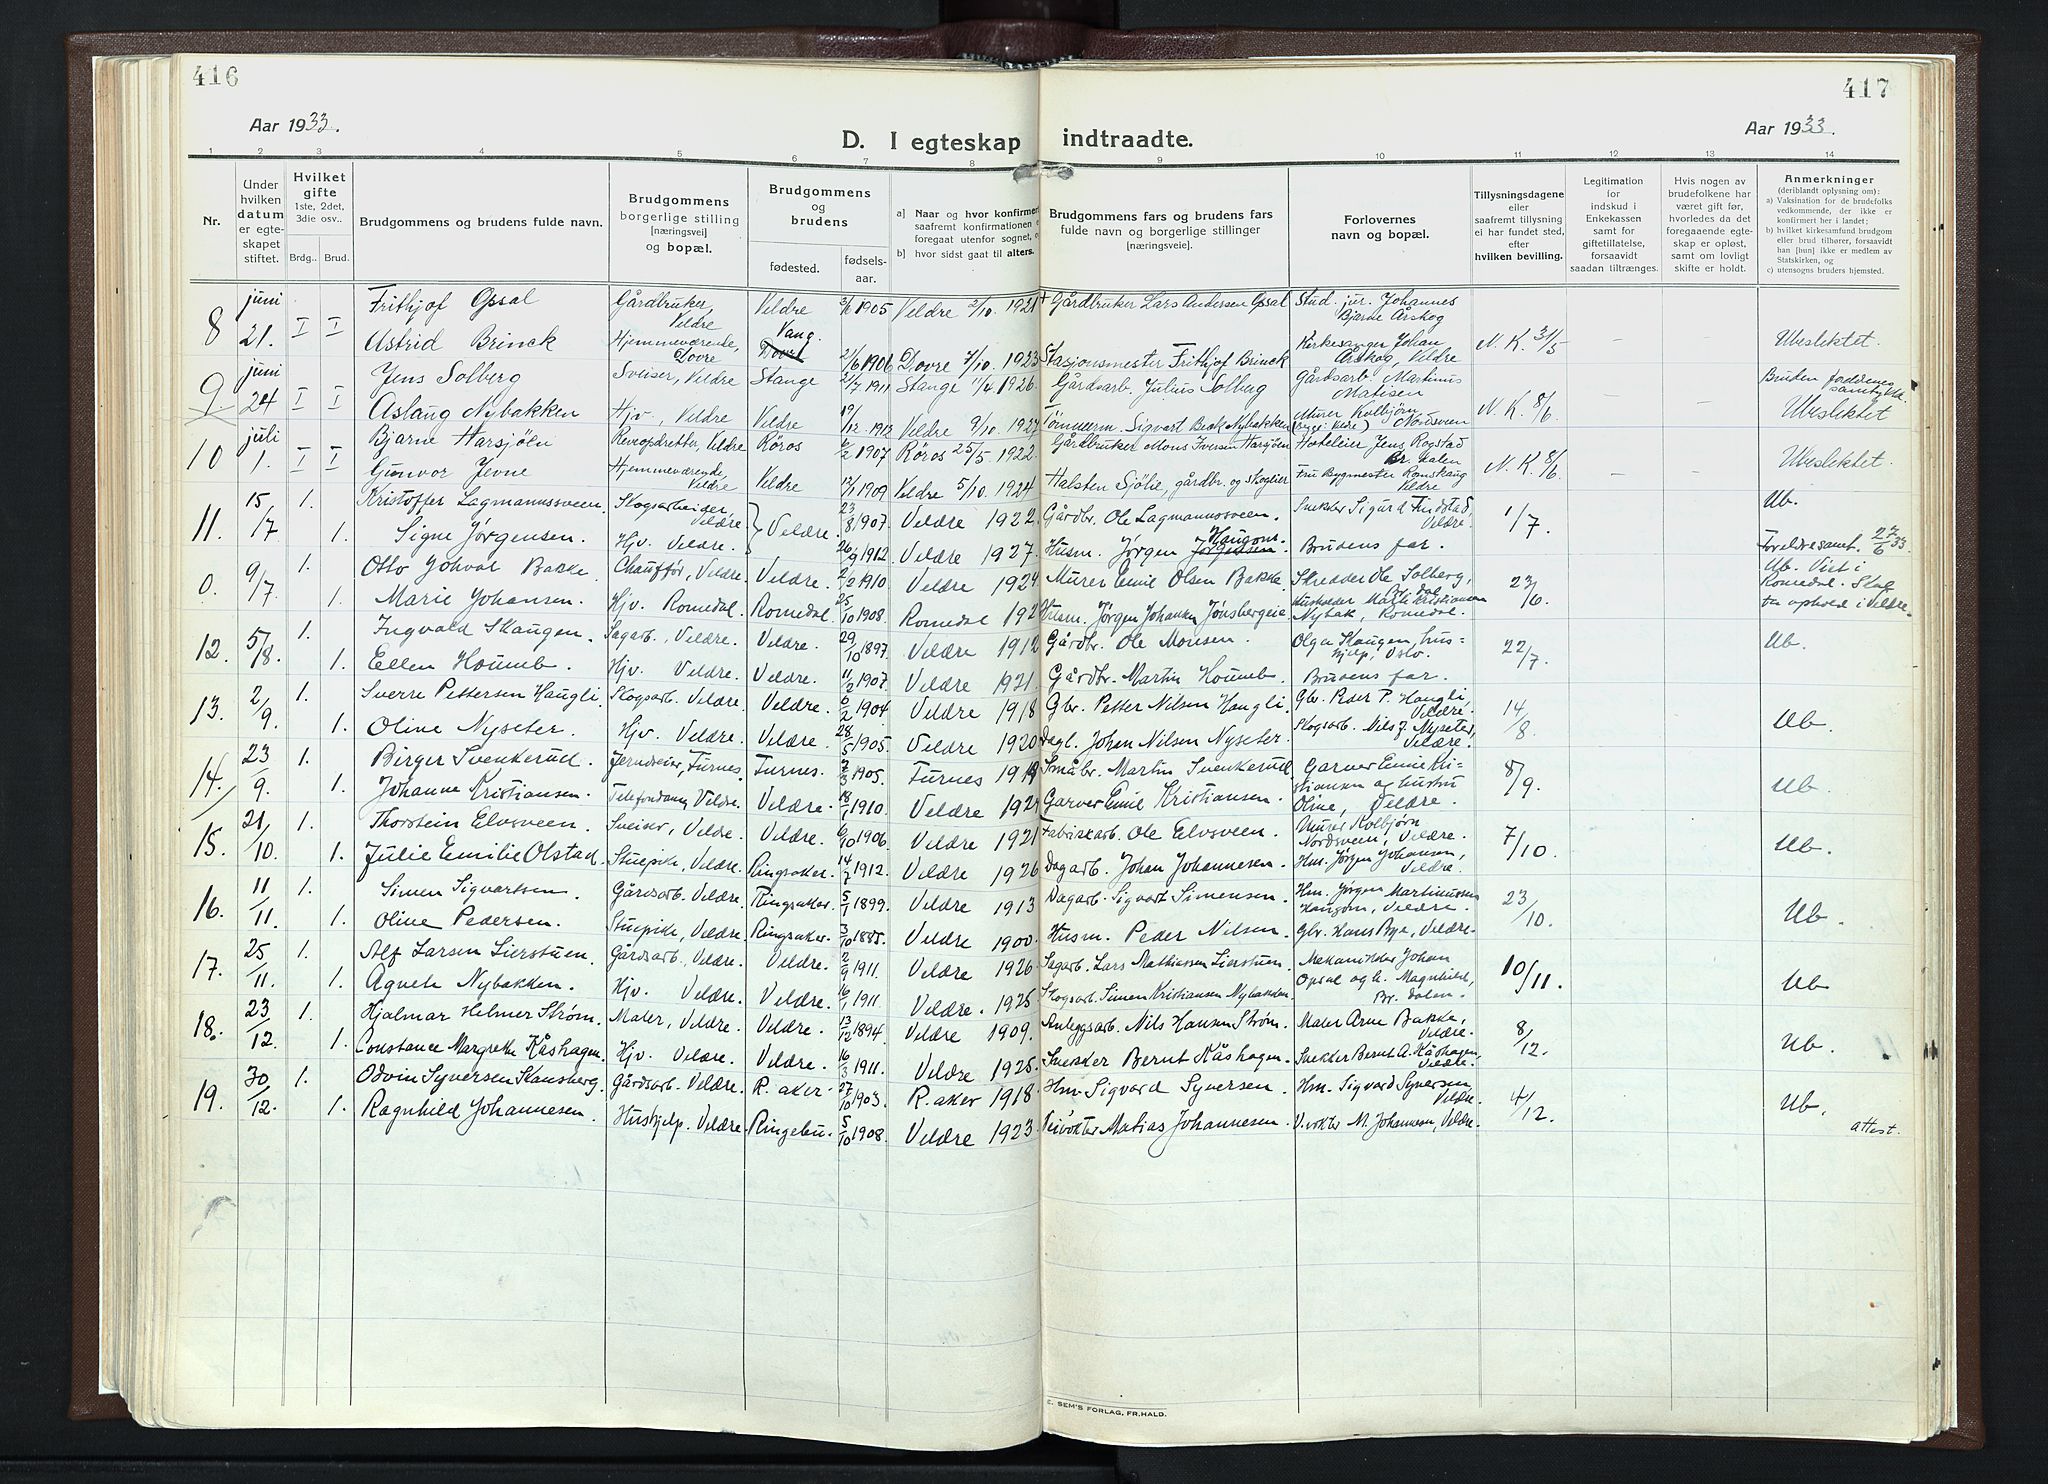 416
417
Aar 1933.
Aar 1933.
D. I egteskap indtraadte.
1 2 3 4 5 6 7 8 9 10 11 12 13 14
Nr.
Under hvilken datum er egte-skapet stiftet.
Hvilket gifte 1ste, 2det, 3die osv..
Brdg.. Brud.
Brudgommens og brudens fulde navn.
Brudgommens borgerlige stilling [næringsvei] og bopæl.
Brudgommens og brudens
fødested. fødsels-aar.
a] Naar og hvor konfirmert
b] hvor sidst gaat til alters.
Brudgommens fars og brudens fars fulde navn og borgerlige stillinger [næringsveie].
Forlovernes navn og bopæl.
Tillysningsdagene eller saafremt tillysning ei har fundet sted, efter hvilken bevilling.
Legitimation for indskud i Enkekassen samt for giftetillatelse, forsaavidt saadan tiltrænges.
Hvis nogen av brudefolkene har været gift før, hvorledes da det foregaaende egte-skap er opløst, samt om lovligt skifte er holdt.
Anmerkninger
(deriblandt oplysning om):
a) Vaksination for de brudefolks vedkommende, der ikke er konfirmert her i landet;
b) hvilket kirkesamfund brudgom eller brud tilhører, forsaavidt han [hun] ikke er medlem av Statskirken, og
c) utensogns bruders hjemsted.
8 juni 21. I Frithjof Opsal Gårdbruker, Veldre Veldre 1905 Veldre 2/10. 1921 Gårdbruker Lars Andersen Opsal Stud. jur. Johannes Bjarne Årskog
I Astrid Brinck Hjemmeværende, Dovre Vang. Dovre 21/6 1906 Dovre 7/10. 1923 Stasjonsmester Frithjof Brinck Kirkesanger Johan Årskog, Veldre N. K. 31/5 – – Ubeslektet.
9 juni 24 I Jens Solberg Sveiser, Veldre Stange 2/7 1911 Stange 11/4 1926. Gårdsarb. Julius Solberg Gårdsarb. Martinus Matisen Bruden foreldrenes samtykke.
I Aslaug Nybakken Hjv, Veldre Veldre 19/12 1912 Veldre 9/10. 1927 Tømmerm. Sigvart Brek Nybakken Murer Kolbjørn Nordsveen N. K. 8/6. – – Ubeslektet
10 juli 1. I Bjarne Harsjöln Revopdretter, Veldre Röros 6/2 1907 Röros 25/5. 1922. Gårdbruker Mons Iversen Harsjöen Hoteleier Jens Rogstad Br. dalen
I Gunvor Jevne Hjemmeværende, Veldre Veldre 12/1 1909 Veldre 5/10. 1924 Halsten Sjölie, gårdbr. og skogeier Fru Bygmester Romskaug Veldre N. K. 8/6. – – Ubeslektet.
11. 15/17 1. Kristoffer Lagmannssveen. Skogsarbeider, Veldre. Veldre. 23/8 1907. Veldre 1922. Gårdbr. Ole Lagmannssveen. Snekker Sigurd Findstad, Veldre. 1/7. Ub.
1. Signe Jörgensen. Hjv. Veldre. 26/9 1912. Veldre 1927. Husm. Jörgen Jörgensen Haugom. Brudens far. Foreldresamt. 27/6 33.
0. 9/7 1. Otto Johval Bakke. Chauffør, Veldre. Veldre. 2/2 1910. Veldre 1924 Murer Emil Olsen Bakke Skredder Ole Solberg, Br. dal 23/6. Ub. Viet i Romedal.
1. Marie Johansen. Hjv. Romedal. Romedal 25/10 1908. Romedal 192 Husm. Jörgen Johansen Jönsbergeie Husholder Marti Kristiansen Nybak, Romedal. ophold i Veldre.
12. 5/8. 1. Ingvald Skaugen. Sagarb., Veldre. Veldre. 29/10 1897. Veldre 1912 Gårdbr. Ole Monsen. Olga Skaugen, hus-hjelp, Oslo. 22/7. Ub.
1. Ellen Houmb. Hjv. Veldre. Veldre. 11/2 1907. Veldre 1921. Gårdbr. Martin Houmb. Brudens far.
13. 2/9. 1. Sverre Pettersen Haugli. Skogsarb. Veldre. Veldre. 6/2 1904 Veldre 1918 Gbr. Petter Nilsen Haugli. Gbr. Peder P. Haugli, Veldre. 14/8. Ub.
1. Oline Nyseter. Hjv. Veldre. Veldre. 28/5 1905. Veldre 1920 Dagl. Johan Nilsen Nyseter. Skogsarb. Nils J. Nyseter, Veldre.
14. 23/9. 1. Birger Svenkerud. Jerndreier, Furnes. Furnes. 7/3 1905. Furnes 1919 Småbr. Martin Svenkerud. Garver Emil Kri-stiansen og hustru Oline, Veldre. 8/9. Ub.
1. Johanne Kristiansen. Telefondame, Veldre. Veldre. 18/1 1910. Veldre 192 Garver Emil Kristiansen.
15. 21/10. 1. Thorstein Elvsveen. Sveiser, Veldre. Veldre. 6/10 1906. Veldre 1921 Fabriksarb. Ole Elvsveen. Murer Kolbjørn Nordsveen, Veldre. 7/10. Ub.
1. Julie Emilie Olstad. Stuepike, Veldre. Ringsaker. 14/7 1912. Veldre 1926 Dagarb. Johan Johannesen. Hm. Jörgen Johansen, Veldre.
16. 11/11. 1. Simen Sigvartsen. Gårdsarb. Veldre. Ringsaker. 5/1 1899. Veldre 1913 Dagarb. Sigvart Simensen. Hm. Jörgen Martinussen Haugom, Veldre. 23/10. Ub.
1. Oline Pedersen. Stuepike, Veldre. Ringsaker. 3/10 1885. Veldre 1900. Husm. Peder Nilsen. Gbr. Hans Bye, Veldre.
17. 25/11. 1. Alf Larsen Lierstuen. Gårdsarb., Veldre. Veldre. 2/9 1911. Veldre 1926. Sagarb. Lars Mathiassen Lierstuen. Mekaniker Johan Opsal og h. Magnhild, Br. dalen. 10/11. Ub
1. Agnete Nybakken. Hjv. Veldre. Veldre. 16/1 1911. Veldre. 1925. Skogsarb. Simen Kristiansen Nybakken.
18. 23/12. 1. Hjalmar Helmer Strøm. Maler, Veldre. Veldre. 13/12 1894. Veldre 1909. Anleggsarb. Nils Hansen Strøm. Maler Arne Bakke, Veldre. 8/12. Ub.
1. Constance Margrethe Kåshagen. Hjv. Veldre. Veldre. 16/3 1911. Veldre 1925. Snekker Bernt Kåshagen. Snekker Bernt A. Kåshagen, Veldre.
19. 30/12. 1. Odvin Syversen Skansberg. Gårdsarb. Veldre. R. aker. 27/10 1903. R. aker 1918. Hm. Sigvard Syversen. Hm. Sigvard Syversen, Veldre. 4/12. Ub.
1. Ragnhild Johannesen. Hushjelp. Veldre. Ringebu. 5/10 1908. Veldre 1923. Veivokter Matias Johannesen. V.vokter M. Johannesen, Veldre. attest.
E. SEM'S FORLAG, FR.HALD.